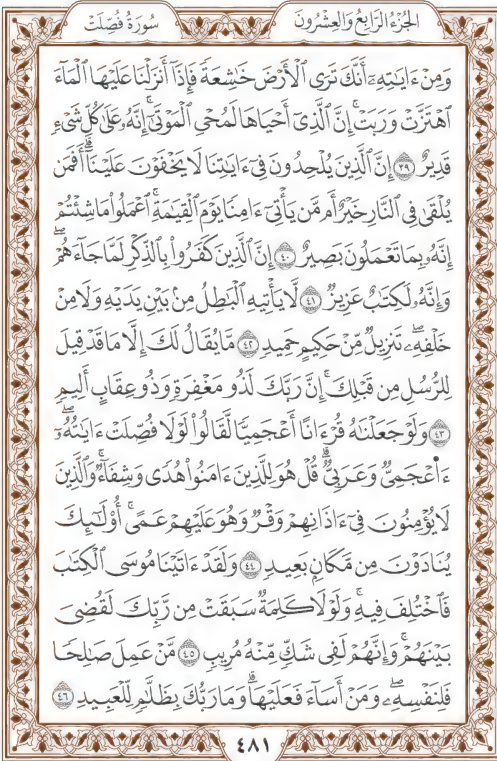 سُورَةُ فُصِّلَتْ
الجُزْءُ الرَّابِعُ وَالعِشْرُونَ
وَمِنْ ءَايَٰتِهِۦٓ أَنَّكَ تَرَى ٱلْأَرْضَ خَٰشِعَةً فَإِذَآ أَنزَلْنَا عَلَيْهَا ٱلْمَآءَ
ٱهْتَزَّتْ وَرَبَتْۚ إِنَّ ٱلَّذِىٓ أَحْيَاهَا لَمُحْىِ ٱلْمَوْتَىٰٓۚ إِنَّهُۥ عَلَىٰ كُلِّ شَىْءٍ
قَدِيرٌ ٣٩ إِنَّ ٱلَّذِينَ يُلْحِدُونَ فِىٓ ءَايَٰتِنَا لَا يَخْفَوْنَ عَلَيْنَآۗ أَفَمَن
يُلْقَىٰ فِى ٱلنَّارِ خَيْرٌ أَم مَّن يَأْتِىٓ ءَامِنًا يَوْمَ ٱلْقِيَٰمَةِۚ ٱعْمَلُوا۟ مَا شِئْتُمْۖ
إِنَّهُۥ بِمَا تَعْمَلُونَ بَصِيرٌ ٤٠ إِنَّ ٱلَّذِينَ كَفَرُوا۟ بِٱلذِّكْرِ لَمَّا جَآءَهُمْۖ
وَإِنَّهُۥ لَكِتَٰبٌ عَزِيزٌ ٤١ لَّا يَأْتِيهِ ٱلْبَٰطِلُ مِنۢ بَيْنِ يَدَيْهِ وَلَا مِنْ
خَلْفِهِۦۖ تَنزِيلٌ مِّنْ حَكِيمٍ حَمِيدٍ ٤٢ مَّا يُقَالُ لَكَ إِلَّا مَا قَدْ قِيلَ
لِلرُّسُلِ مِن قَبْلِكَۚ إِنَّ رَبَّكَ لَذُو مَغْفِرَةٍ وَذُو عِقَابٍ أَلِيمٍ
٤٣ وَلَوْ جَعَلْنَٰهُ قُرْءَانًا أَعْجَمِيًّا لَّقَالُوا۟ لَوْلَا فُصِّلَتْ ءَايَٰتُهُۥٓۖ
ءَا۬عْجَمِىٌّ وَعَرَبِىٌّۗ قُلْ هُوَ لِلَّذِينَ ءَامَنُوا۟ هُدًى وَشِفَآءٌۖ وَٱلَّذِينَ
لَا يُؤْمِنُونَ فِىٓ ءَاذَانِهِمْ وَقْرٌ وَهُوَ عَلَيْهِمْ عَمًىۚ أُو۟لَٰٓئِكَ
يُنَادَوْنَ مِن مَّكَانٍۭ بَعِيدٍ ٤٤ وَلَقَدْ ءَاتَيْنَا مُوسَى ٱلْكِتَٰبَ
فَٱخْتُلِفَ فِيهِۗ وَلَوْلَا كَلِمَةٌ سَبَقَتْ مِن رَّبِّكَ لَقُضِىَ
بَيْنَهُمْۚ وَإِنَّهُمْ لَفِى شَكٍّ مِّنْهُ مُرِيبٍ ٤٥ مَّنْ عَمِلَ صَٰلِحًا
فَلِنَفْسِهِۦۖ وَمَنْ أَسَآءَ فَعَلَيْهَاۗ وَمَا رَبُّكَ بِظَلَّٰمٍ لِّلْعَبِيدِ ٤٦
٤٨١